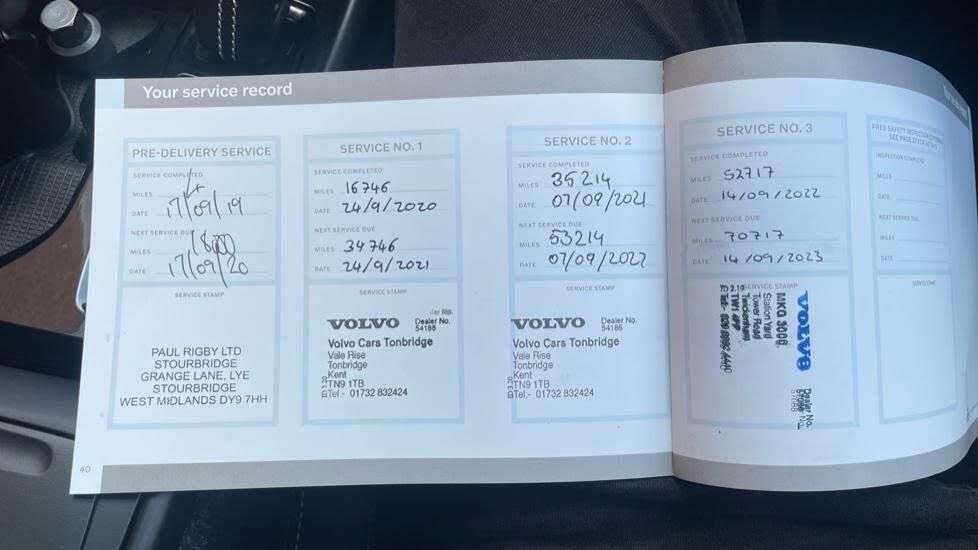 Your service record
PRE-DELIVERY SERVICE
SERVICE COMPLETED
MILES 14
DATE 17/09/19
NEXT SERVICE DUE
MILES 18000
DATE 17/09/20
SERVICE STAMP
PAUL RIGBY LTD
STOURBRIDGE
GRANGE LANE, LYE
STOURBRIDGE
WEST MIDLANDS DY9 7HH
40
SERVICE NO. 1
SERVICE COMPLETED
MILES 16746
DATE 24/9/2020
NEXT SERVICE DUE
MILES 34746
DATE 24/9/2021
SERVICE STAMP
VOLVO Dealer No.
54188
Volvo Cars Tonbridge
Vale Rise
Tonbridge
Kent
TN9 1TB
Tel:- 01732 832424
SERVICE NO. 2
SERVICE COMPLETED
MILES 35214
DATE 07/09/2021
NEXT SERVICE DUE
MILES 53214
DATE 07/09/2022
SERVICE STAMP
VOLVO Dealer No.
54186
Volvo Cars Tonbridge
Vale Rise
Tonbridge
Kent
TN9 1TB
Tel:- 01732 832424
SERVICE NO. 3
SERVICE COMPLETED
MILES 52717
DATE 14/09/2022
NEXT SERVICE DUE
MILES 70717
DATE 14/09/2023
SERVICE STAMP
VOLVO Dealer No.
57088
MKG 3000
Station Yard
Tower Road
Twickenham
TW1 4PP
INSPECTION COMPLETED
MILES
DATE
NEXT SERVICE DUE
MILES
DATE
SERVICE STAMP